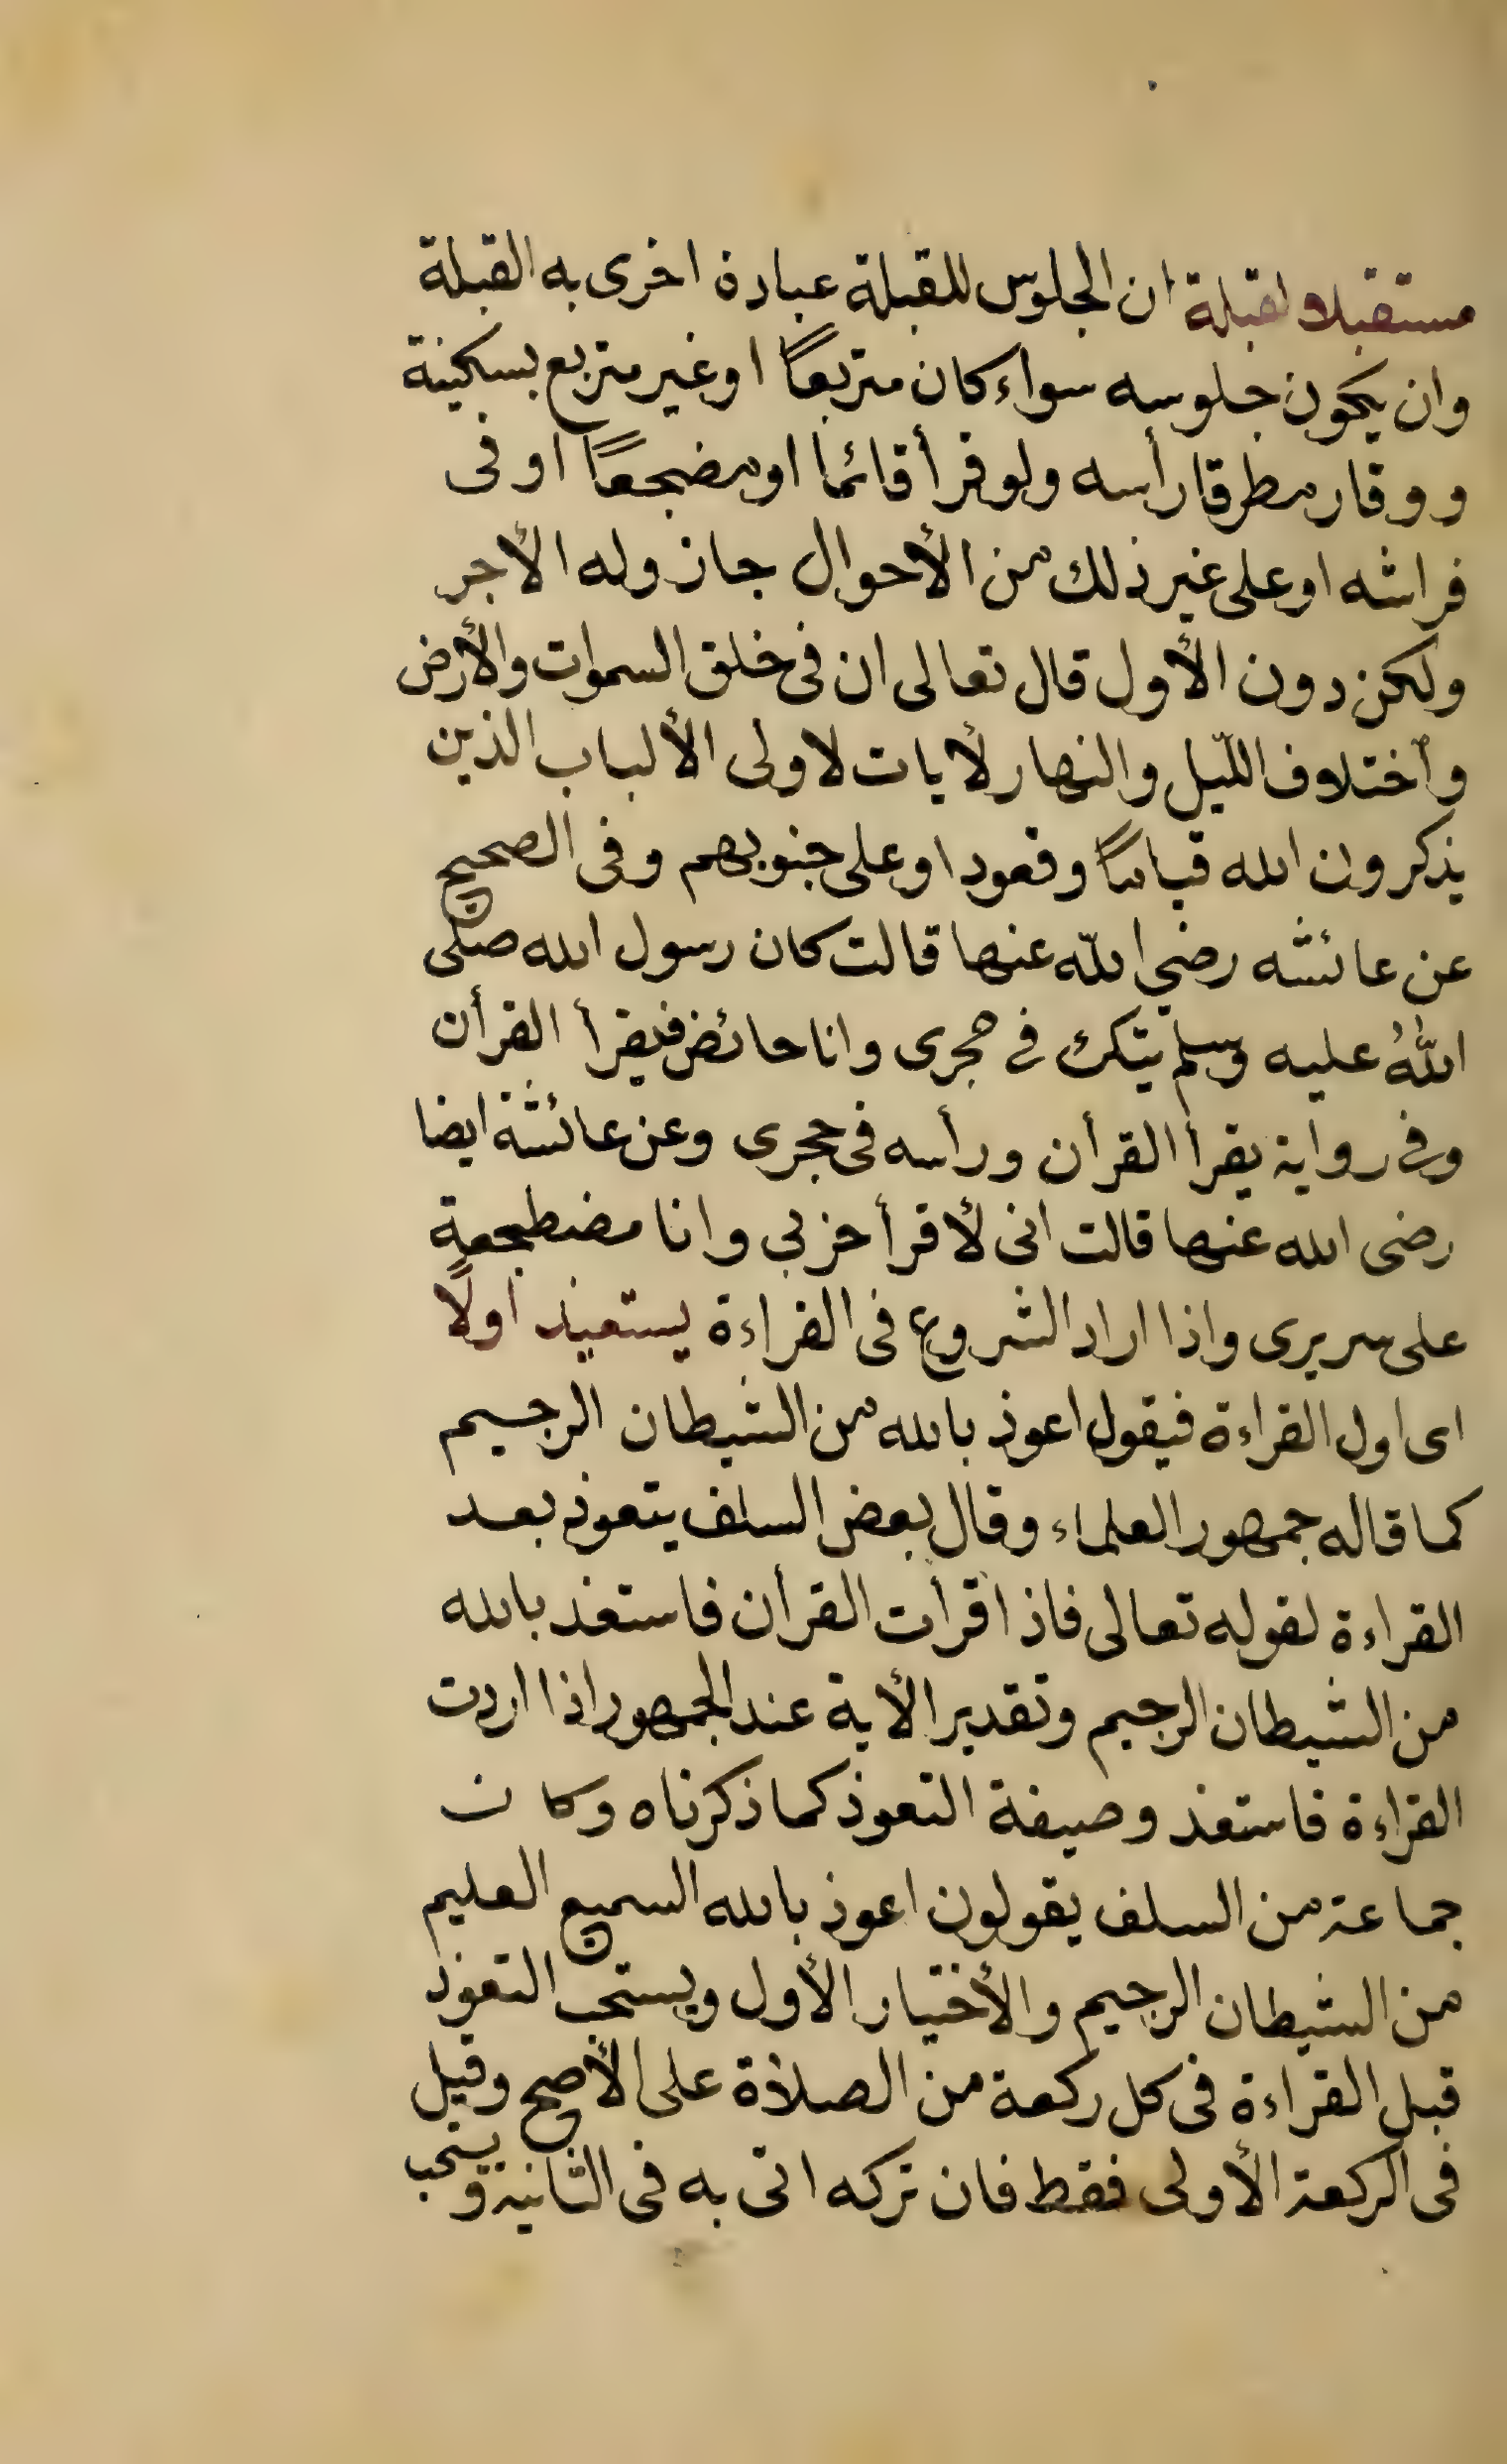 مستقبلا لقبلة ان الجلوس للقبلة عبادة اخرى به القبلة
وان يكون جلوسه سواء كان متربعاً او غير متربع بسكينة
ووقار مطرقا رأسه ولو قرأ قائما او مضجعاً او فى
فراشه او على غير ذلك من الأحوال جاز وله الأجر
ولكن دون الأول قال تعالى ان فى خلق السموات والأرض
وأختلاف اللّيل والنهار لأيات لاولى الألباب الذين
يذكرون الله قياماً وقعودا وعلى جنوبهم وفى الصحيح
عن عائشه رضي اللّه عنها قالت كان رسول الله صلى
اللّهُ عليه وسلم يتكئ في حجرى وانا حائض فيقرأ القرأن
وفى رواية يقرأ القرأن ورأسه فى حجرى وعن عائشة ايضا
رضى الله عنها قالت انى لأقرأ حزبي وانا مضطجعة
على سريرى واذا اراد الشروع فى القراءة يستعيذ اولًا
اى اول القراءة فيقول اعوذ بالله من الشيطان الرجيم
كما قاله جمهور العلماء وقال بعض السلف يتعوذ بعد
القراءة لقوله تعالى فاذا قرأت القرأن فاستعذ بالله
من الشيطان الرجيم وتقدير الأية عند الجمهور اذا اردت
القراءة فاستعذ وصيغة التعوذ كما ذكرناه وكان
جماعة من السلف يقولون اعوذ بالله السميع العليم
من الشيطان الرجيم والأختيار الأول ويستحب التعوذ
قبل القراءة فى كل ركعة من الصلاة على الأصح وقيل
فى الركعة الأولى فقط فان تركه اتى به فى الثانية ويستحب